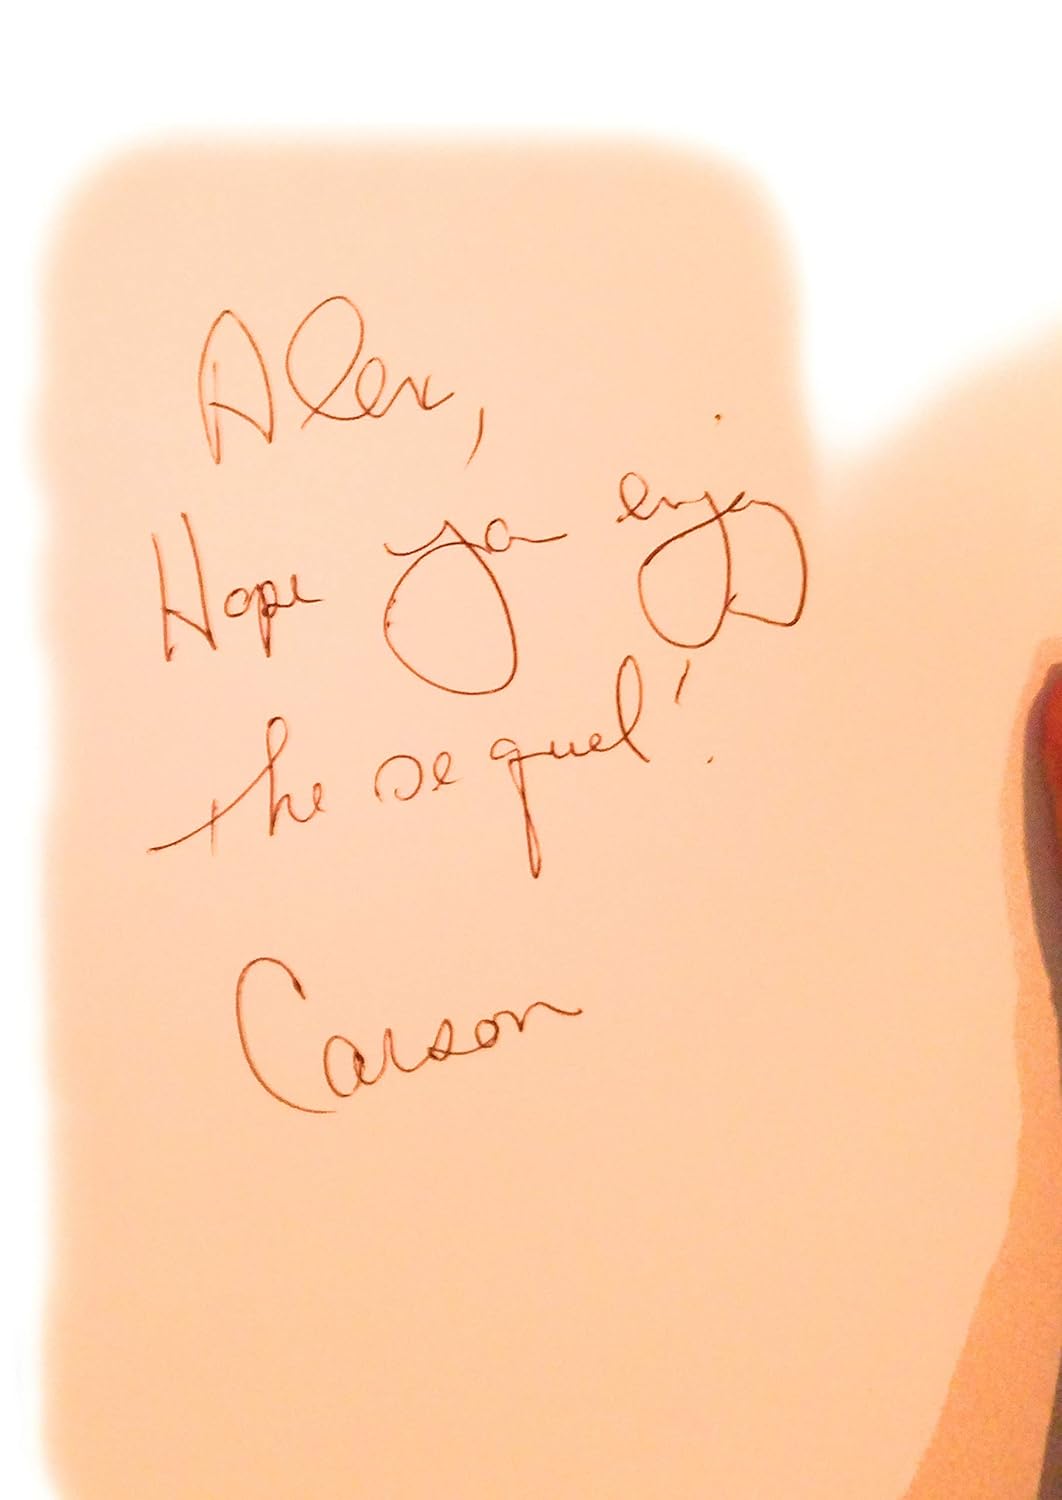 Alex,
Hope you enjoy
the sequel!
Carson